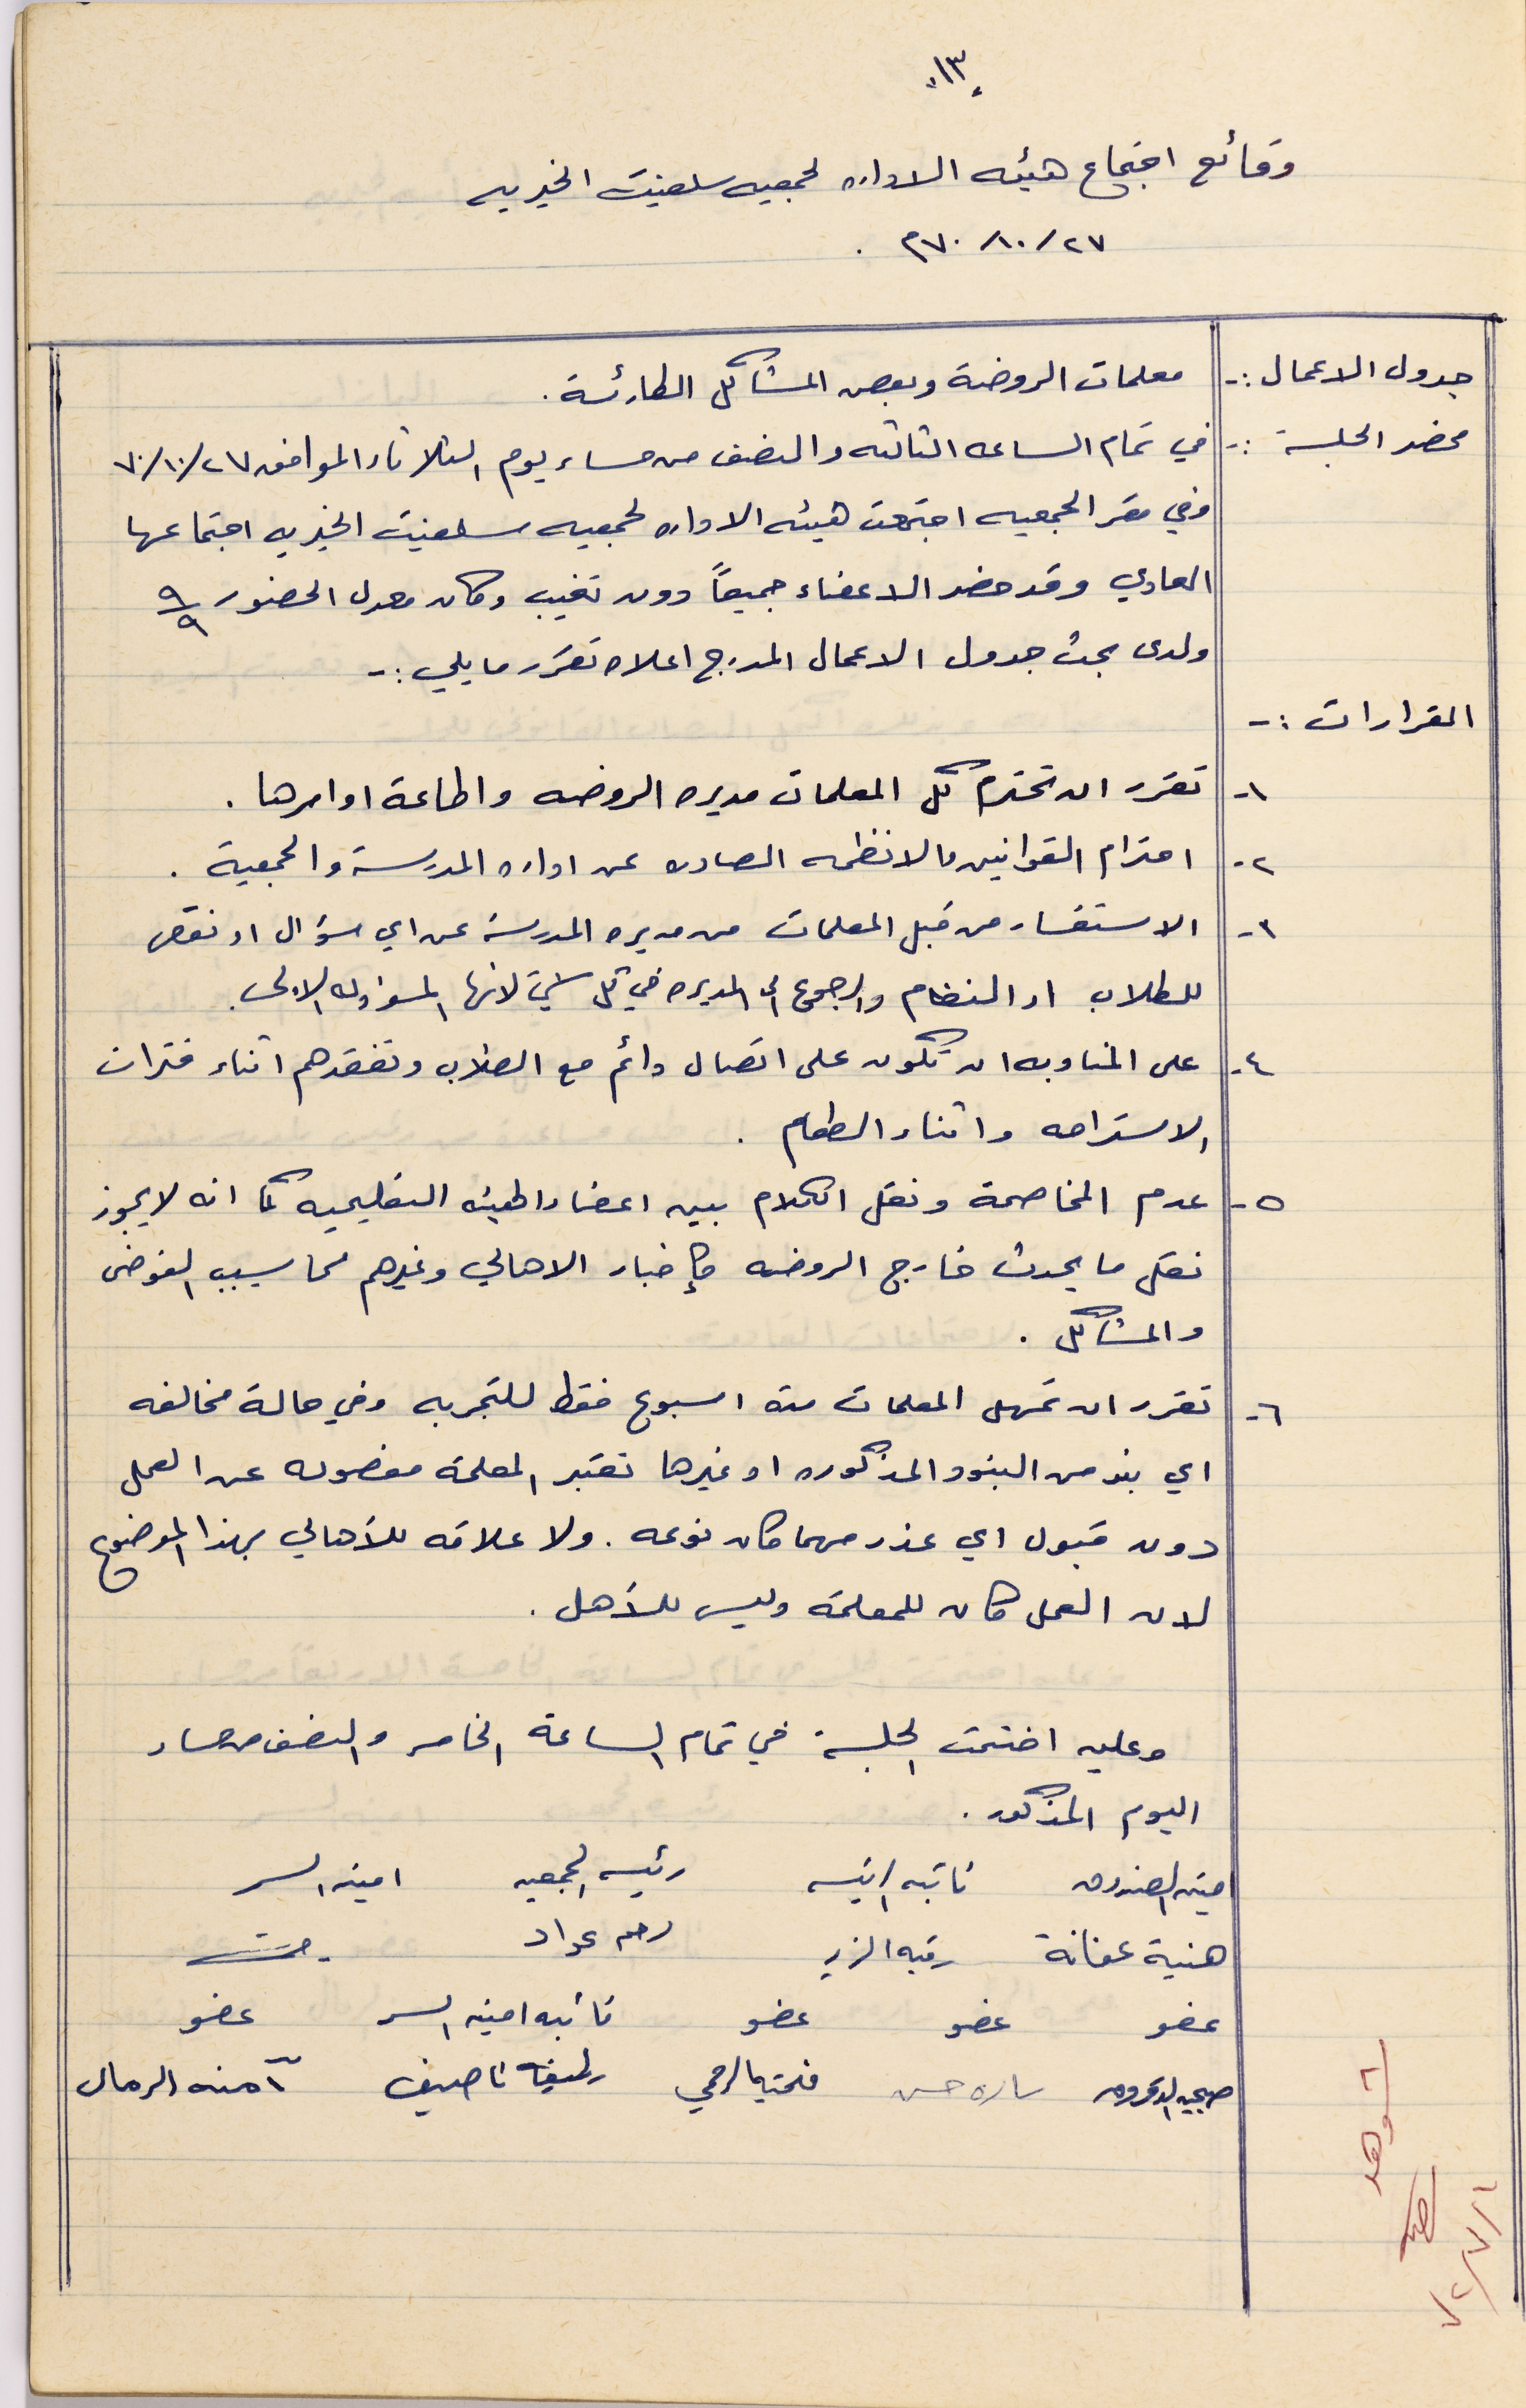 ١٣
وقائع اجتماع هيئه الاداره لجمعيه سلفيت الخيريه
٢٧/١٠/٧٠م .
جدول الاعمال :- معلمات الروضة وبعض المشاكل الطارئة .
محضر الجلسة :- في تمام الساعه الثالثه والنصف من مساء يوم الثلاثاء الموافق ٢٧/١٠/٧٠
وفي مقر الجمعيه اجتمعت هيئه الاداره لجمعيه سلفيت الخيريه اجتماعها
العادي وقد حضر الاعضاء جميعاً دون تغيب وكان معدل الحضور ٩/٩
ولدى بحث جدول الاعمال المدرج اعلاه تقرر ما يلي :-
المقرارات :-
١- تقرر ان تحترم كل المعلمات مديره الروضه واطاعة اوامرها .
٢- احترام القوانين والانظمه الصادره عن اداره المدرسة والجمعية .
٣- الاستفسار من قبل المعلمات من مديره المدرسة عن اي سؤال او نقص
للطلاب او النظام والرجوع الى المديره في كل شيء لانها المسؤوله الاولى .
٤- على المناوبه ان تكون على اتصال دائم مع الطلاب وتفقدهم اثناء فترات
الاستراحه واثناء الطعام .
٥- عدم المخاصمة ونقل الكلام بين اعضاء الهيئه التعليميه كما انه لا يجوز
نقل ما يحدث خارج الروضه كإخبار الاهالي وغيرهم مما يسبب الفوضى
والمشاكل .
٦- تقرر ان تمهل المعلمات مدة اسبوع فقط للتجربه وفي حالة مخالفه
اي بند من البنود المذكوره او غيرها تعتبر المعلمة مفصوله عن العمل
دون قبول اي عذر مهما كان نوعه . ولا علاقه للأهالي بهذا الموضوع
لان العمل كان للمعلمة وليس للأهل .
وعليه اختتمت الجلسة في تمام الساعة الخامسه والنصف من مساء
اليوم المذكور .
امينه الصندوق نائبه الرئيسه رئيسه الجمعيه امينه السر
هنية عفانة رقيه الزير رحمه عواد
عضو عضو عضو نائبه امينه السر عضو
صبحيه الدقروق ساره حسن فلحتيا لرحمي لطيفة ناصيف آمنه الرمال
شوهد
١/٧/٧٢